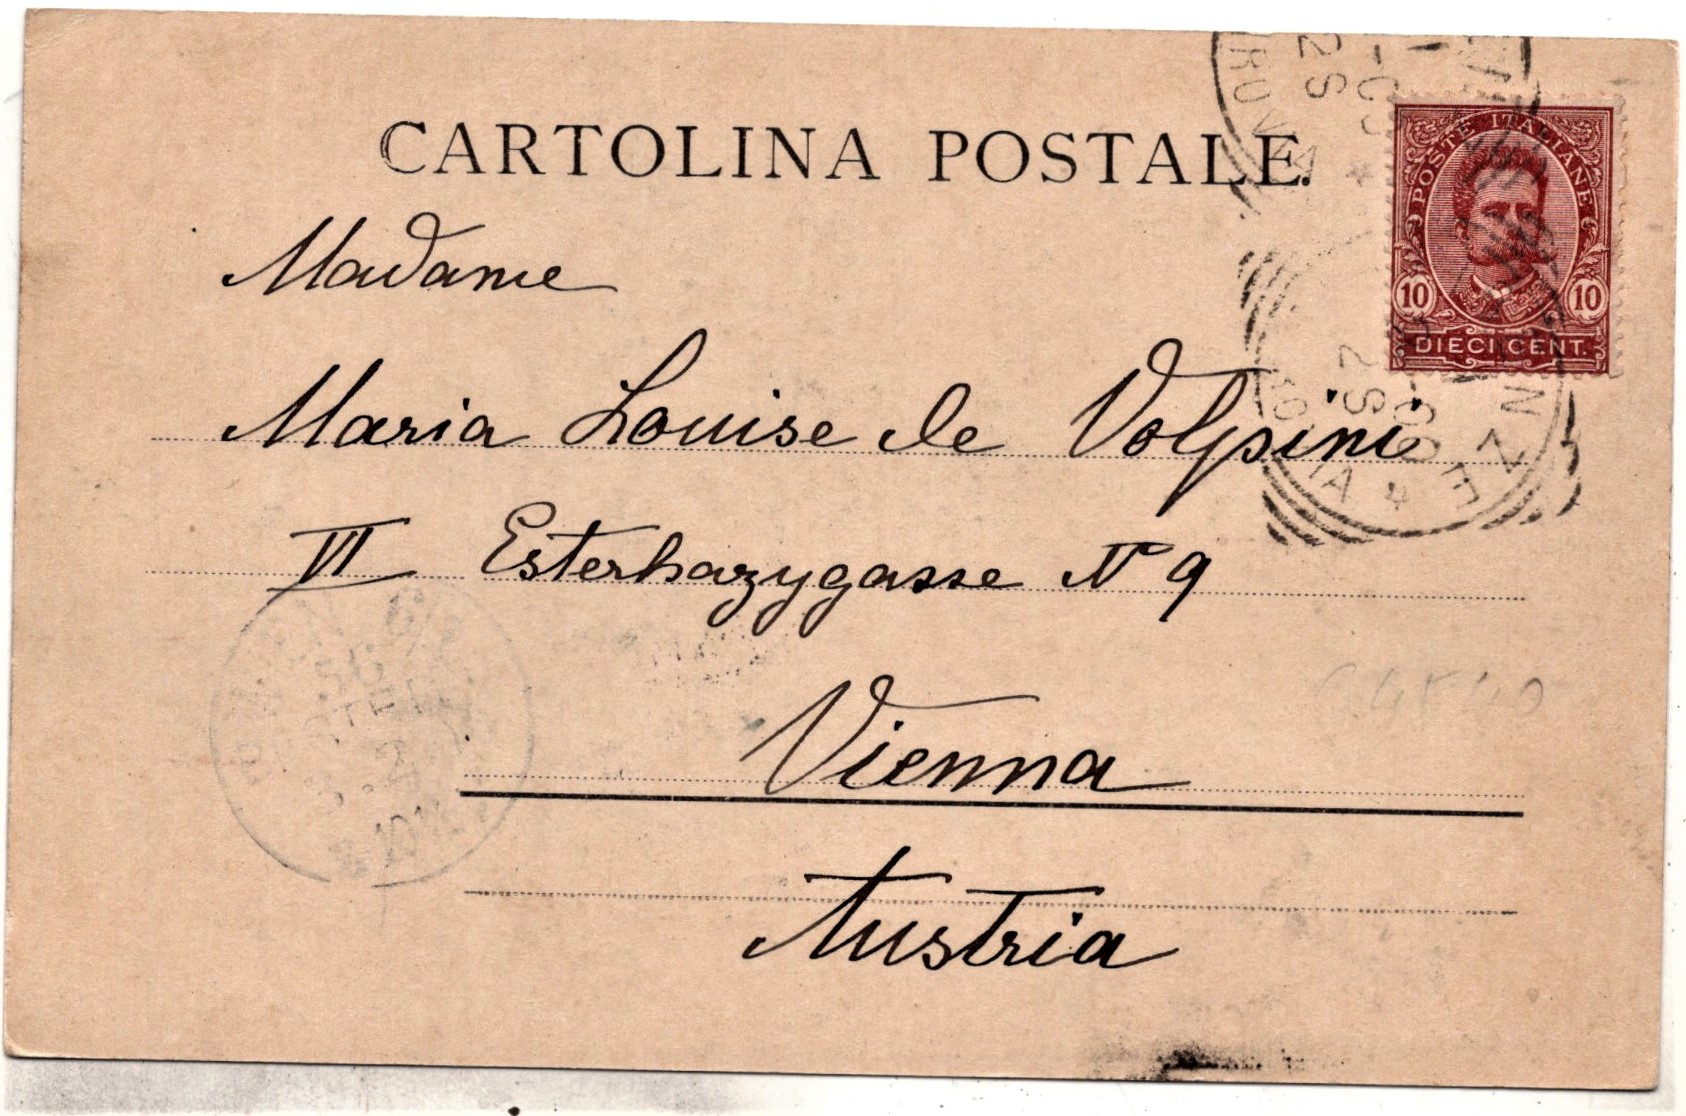 CARTOLINA POSTALE.
POSTE ITALIANE
10 10
DIECI CENT.
Madame
Maria Louise de Volpini
VI Esterhazygasse N 9
Vienna
Austria